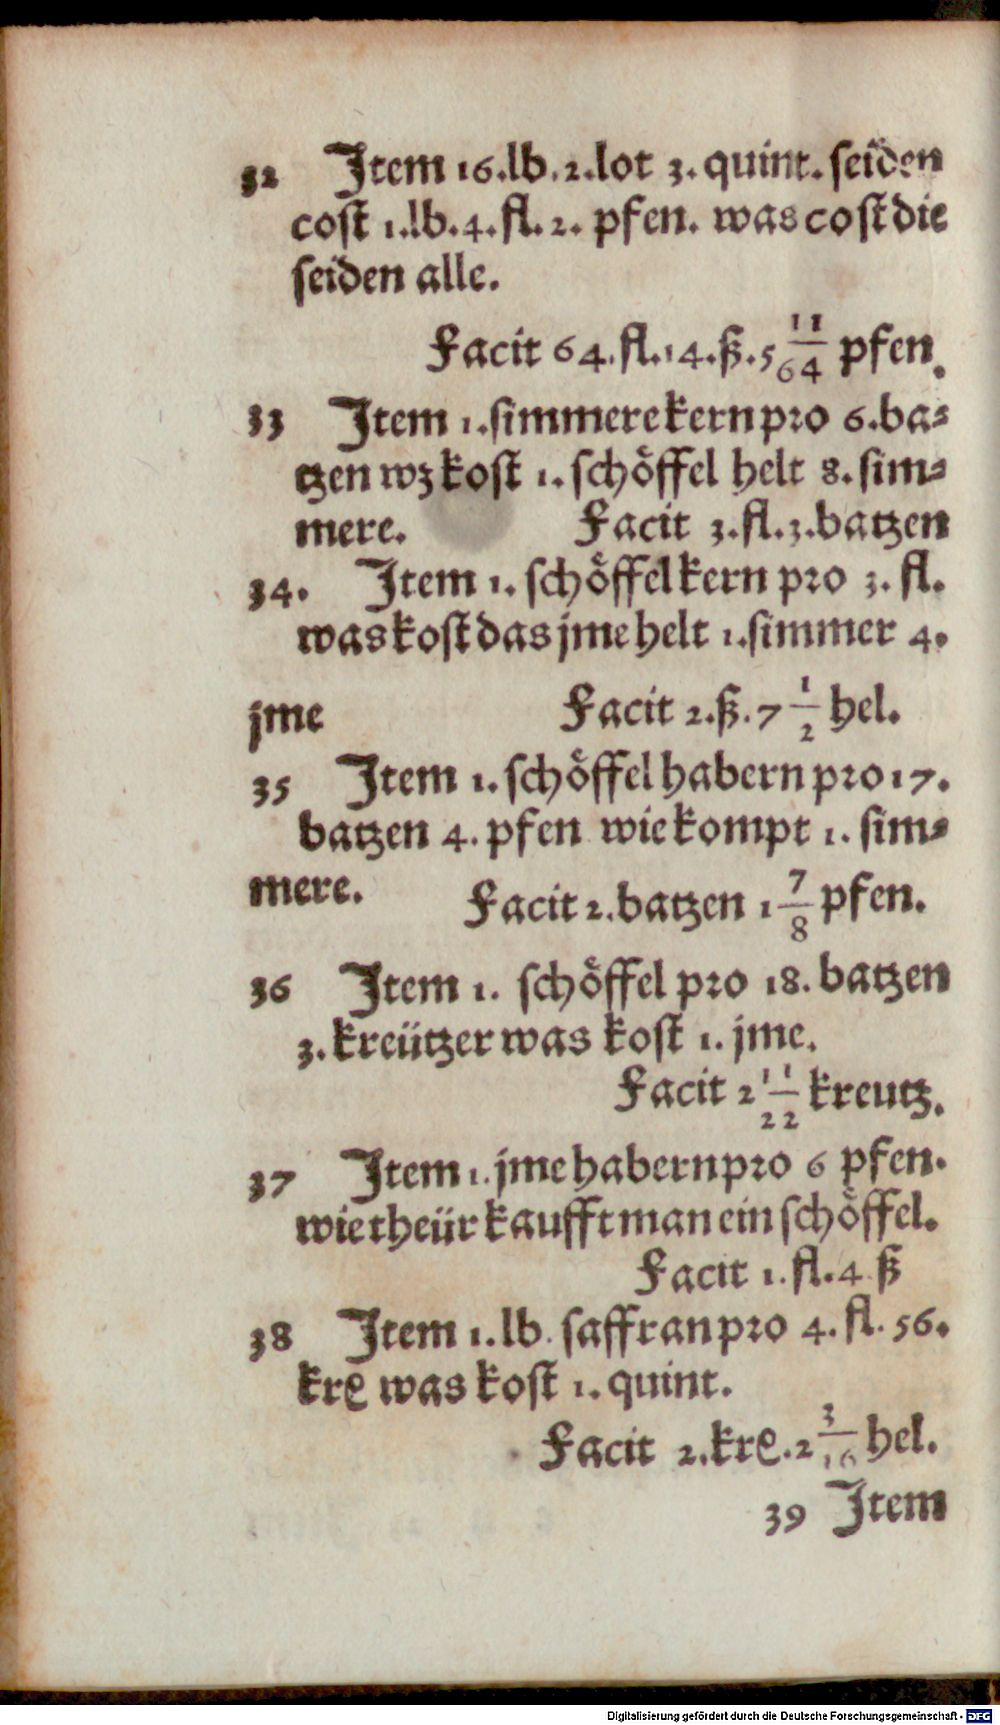 32 Item 16.lb.2.lot 3. quint. seiden
cost 1.lb.4.fl.2. pfen. was cost die
seiden alle.
Facit 64.fl.14.ß.5 11/64 pfen.
33 Item 1.simmere kern pro 6.ba⸗
tzen wz kost 1. schöffel helt 8. sim⸗
mere. Facit 3.fl.3.batzen
34. Item 1. schöffel kern pro 3. fl.
was kost das jme helt 1.simmer 4.
jme Facit 2.ß.7 1/2 hel.
35 Item 1. schöffel habern pro 17.
batzen 4. pfen wie kompt 1. sim⸗
mere. Facit 2.batzen 1 7/8 pfen.
36 Item 1. schöffel pro 18. batzen
3. kreützer was kost 1. jme.
Facit 2 11/22 kreutz.
37 Item 1. jme habern pro 6 pfen.
wie theür kaufft man ein schöffel.
Facit 1. fl. 4 ß
38 Item 1.lb. saffran pro 4. fl. 56.
krꝛ was kost 1. quint.
Facit 2.krꝛ.2 3/16 hel.
39 Item
Digitalisierung gefördert durch die Deutsche Forschungsgemeinschaft - DFG